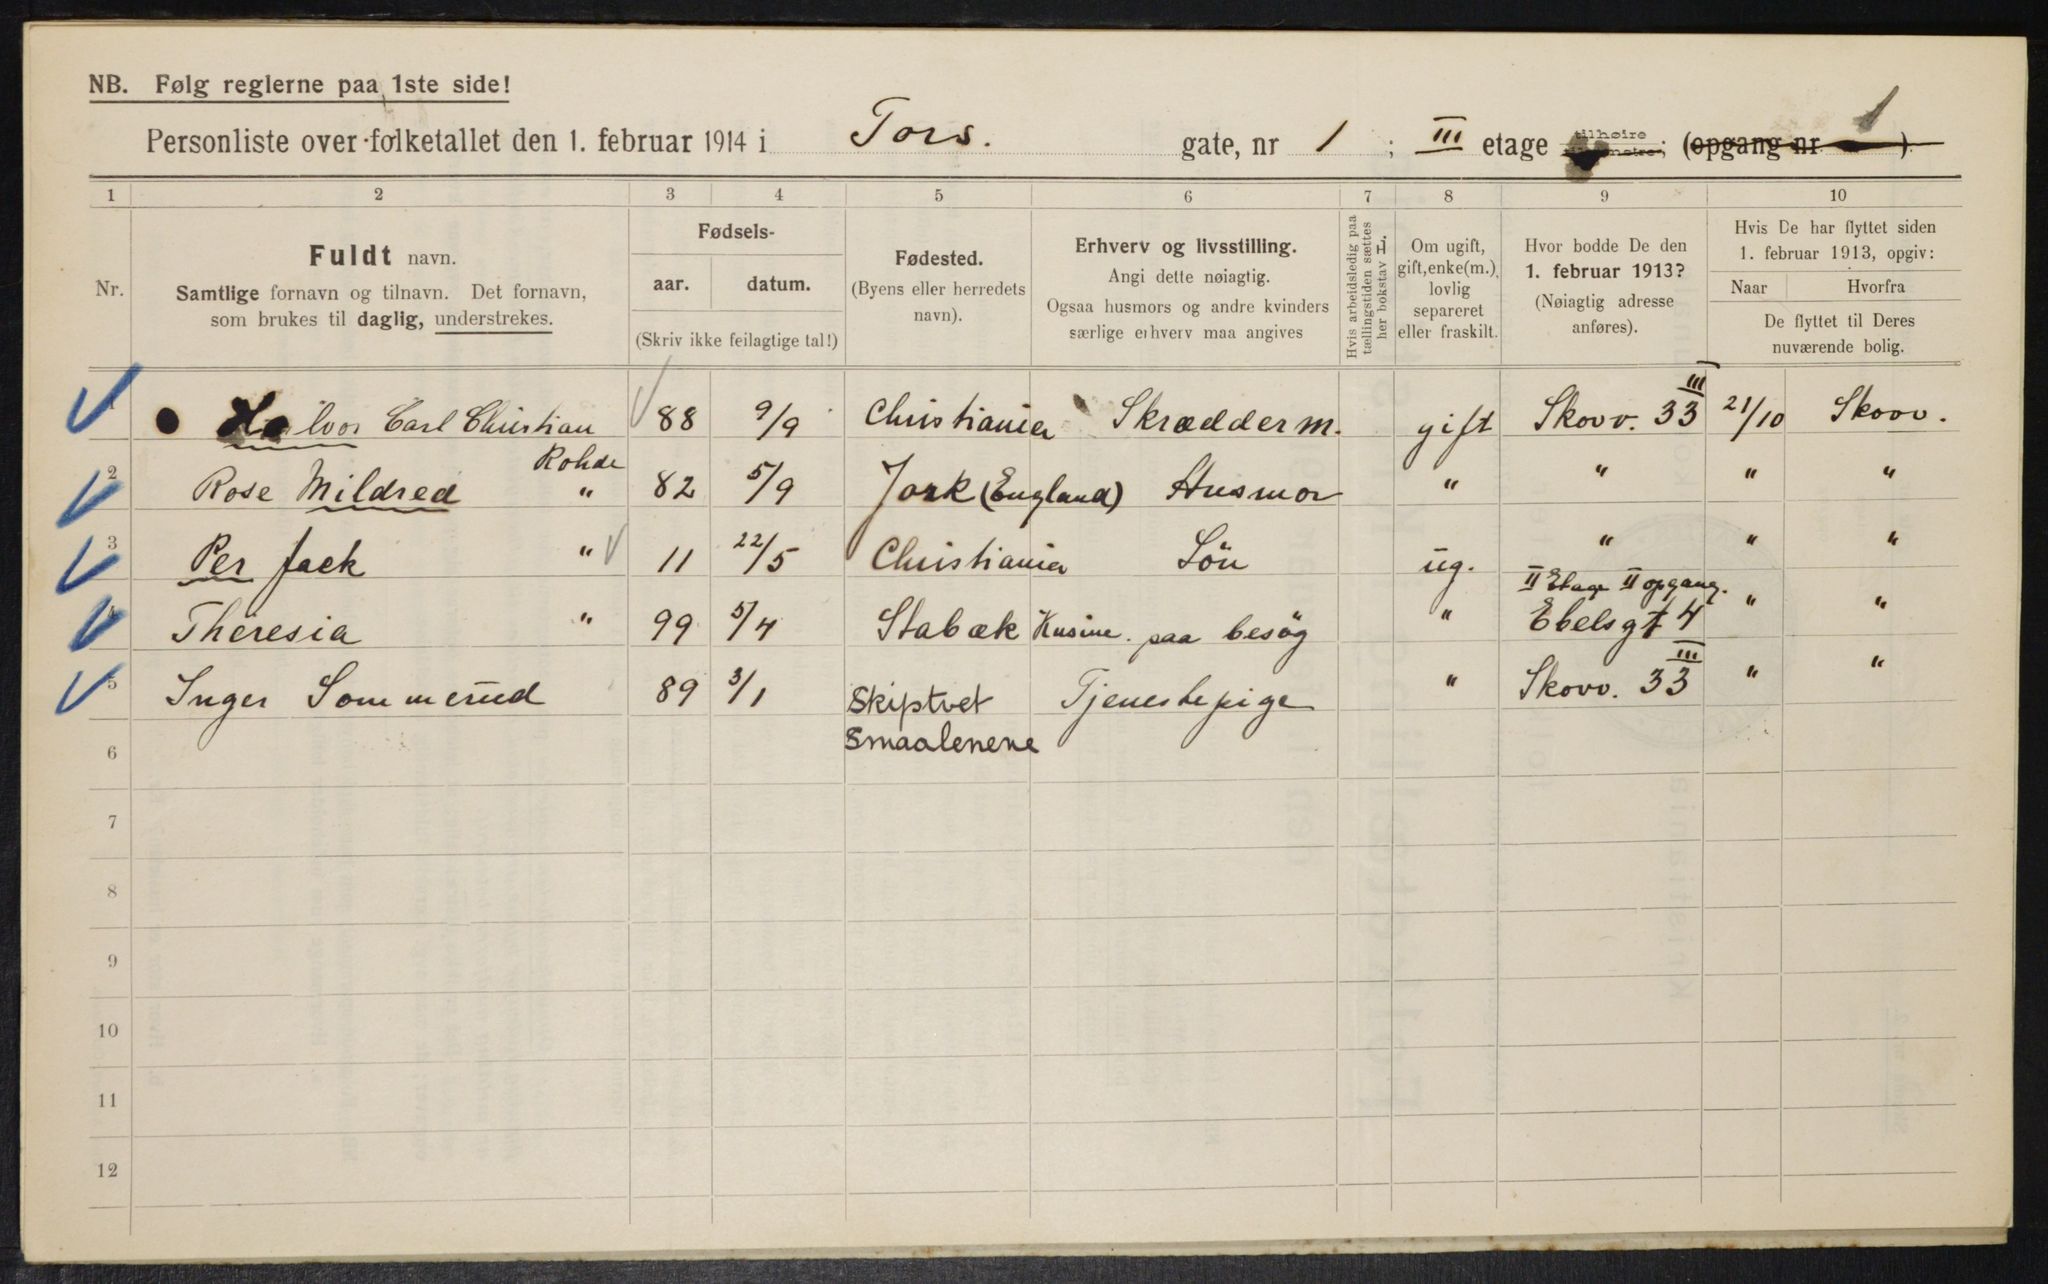 NB. Følg reglerne paa 1ste side!
Personliste over folketallet den 1. februar 1914 i Tors. gate, nr 1 ; III etage tilhøire ; (opgang nr 1)
1 2 3 4 5 6 7 8 9 10
Nr.
Fuldt navn.
Samtlige fornavn og tilnavn. Det fornavn, som brukes til daglig, understrekes.
Fødsels-
aar. datum.
(Skriv ikke feilagtige tal!)
Fødested.
(Byens eller herredets navn).
Erhverv og livsstilling.
Angi dette nøiagtig.
Ogsaa husmors og andre kvinders særlige erhverv maa angives
Hvis arbeidsledig paa tællingstiden sættes her bokstav L.
Om ugift, gift, enke(m.), lovlig separeret eller fraskilt.
Hvor bodde De den 1. februar 1913?
(Nøiagtig adresse anføres).
Hvis De har flyttet siden 1. februar 1913, opgiv:
Naar Hvorfra
De flyttet til Deres nuværende bolig.
1 Halvor Carl Christian Rohde 88 9/9 Christiania Skrædderm. gift Skovv. 33 III 21/10 Skovv.
2 Rose Mildred " 82 5/9 York (England) Husmor " " " "
3 Per Jack " 11 22/5 Christiania Sön ug. " " "
4 Theresia " 99 5/4 Stabæk Kusine. paa besög " II Etage II opgang. Ebelsgt 4 " "
5 Inger Sommerud 89 3/1 Skiptvet Smaalenene Tjenestepige " Skovv. 33 III " "
6
7
8
9
10
11
12